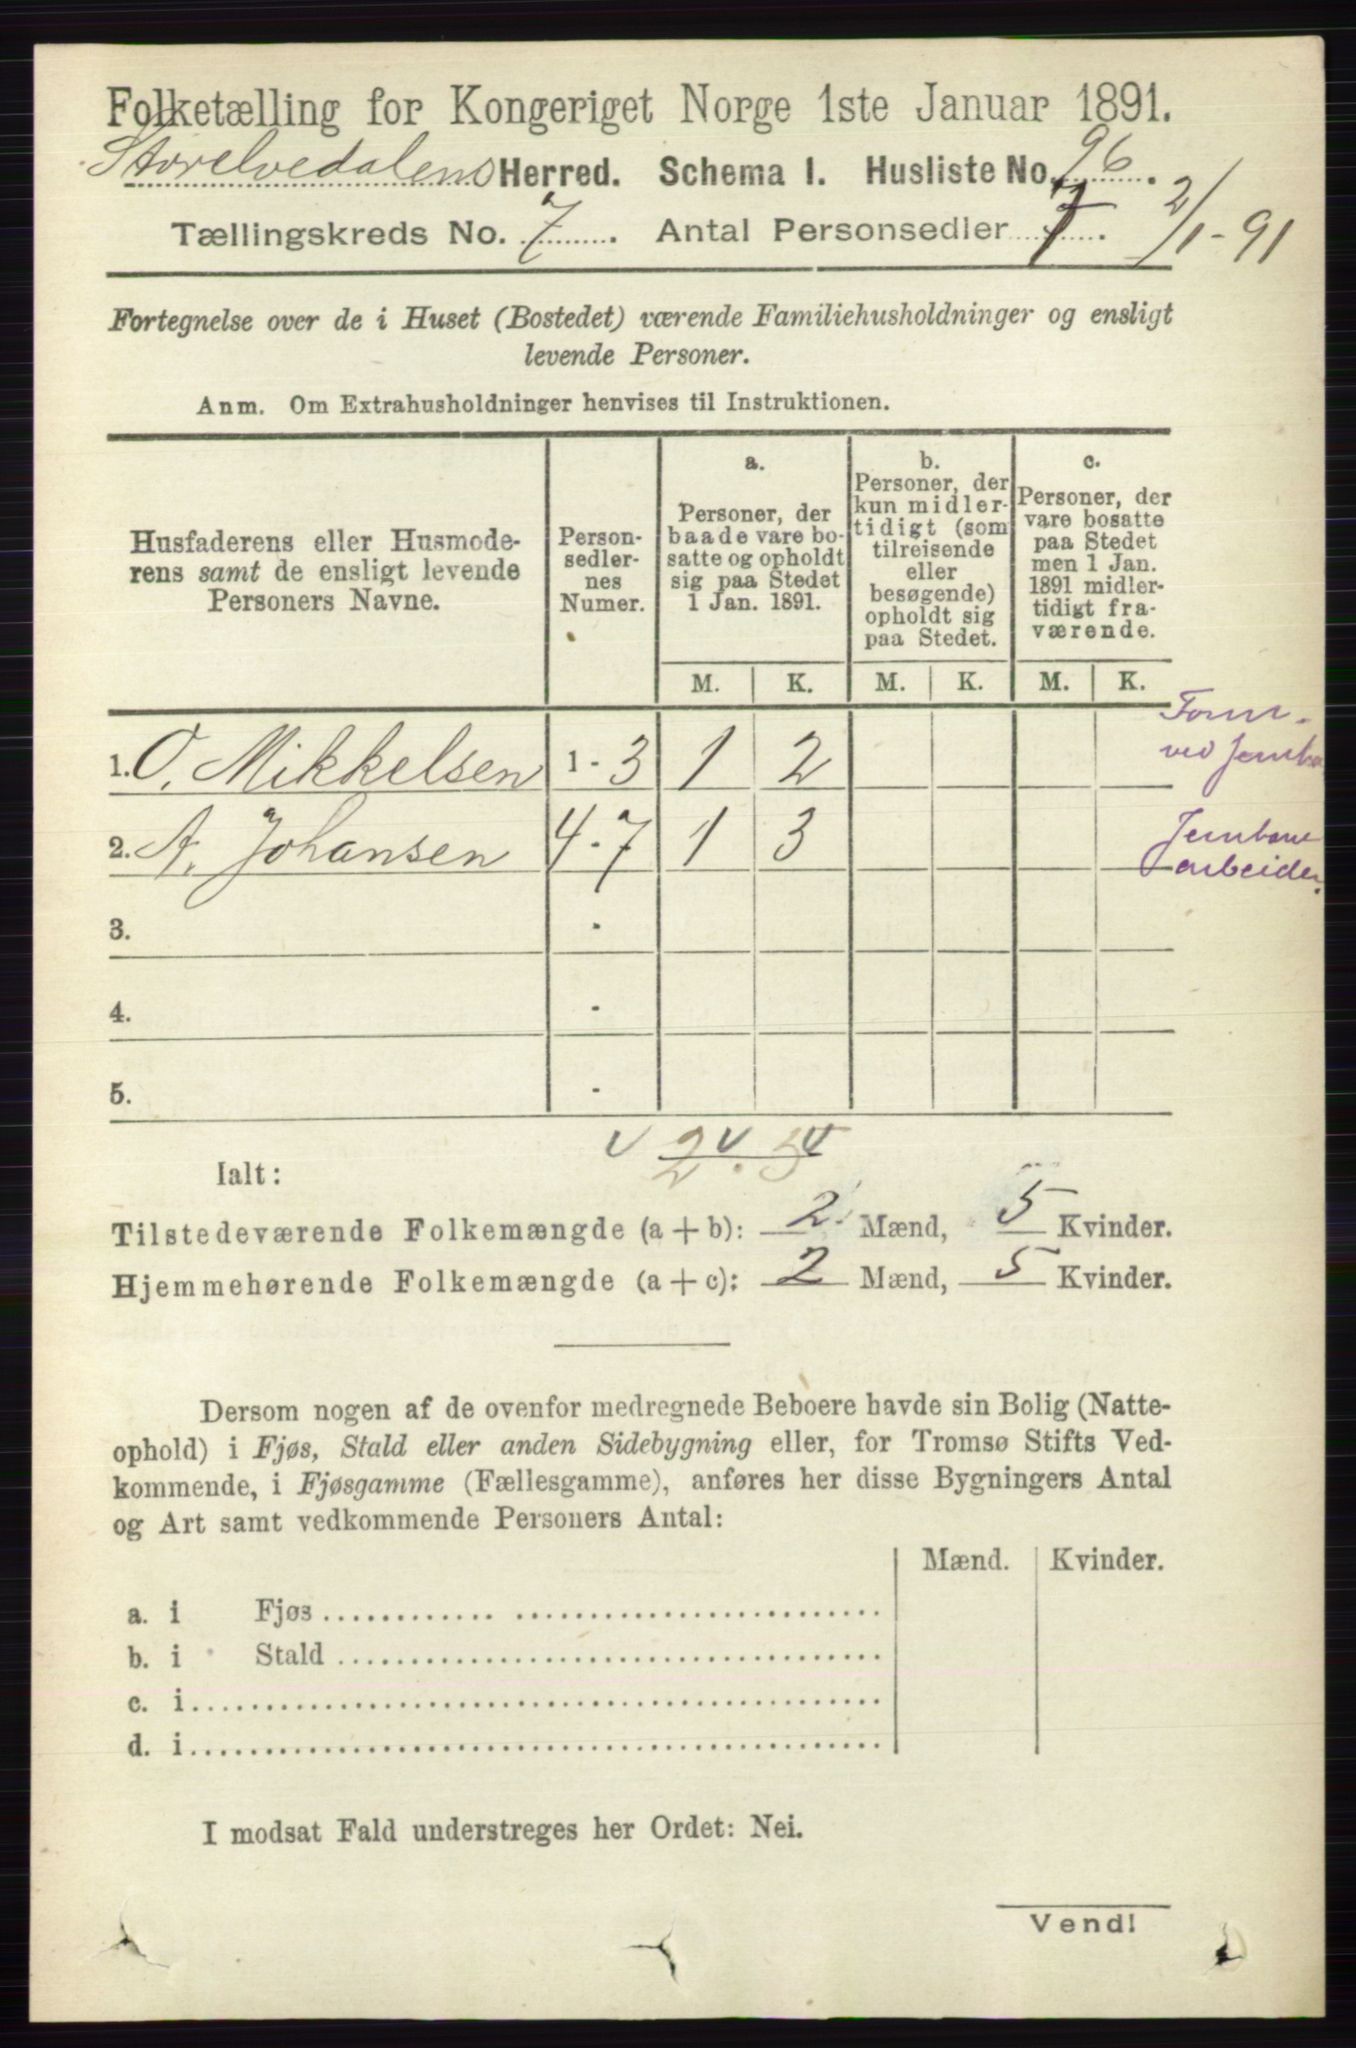 Folketælling for Kongeriget Norge 1ste Januar 1891.
Storelvedalens Herred. Schema I. Husliste No. 96.
Tællingskreds No. 7. Antal Personsedler 7. 2/1-91
Fortegnelse over de i Huset (Bostedet) værende Familiehusholdninger og ensligt
levende Personer.
Anm. Om Extrahusholdninger henvises til Instruktionen.
Husfaderens eller Husmode-
rens samt de ensligt levende
Personers Navne.
Person-
sedler-
nes
Numer.
a.
Personer, der
baade vare bo-
satte og opholdt
sig paa Stedet
1 Jan. 1891.
b.
Personer, der
kun midler-
tidigt (som
tilreisende
eller
besøgende)
opholdt sig
paa Stedet.
c.
Personer, der
vare bosatte
paa Stedet
men 1 Jan.
1891 midler-
tidigt fra-
værende.
M. K. M. K. M. K.
1. O. Mikkelsen 1 - 3 1 2
Form.
ved
2. A. Johansen 4 - 7 1 3
Jernbane
arbeider.
3. -
4. -
5. -
2
2 . 5
Ialt:
Tilstedeværende Folkemængde (a + b): 2 Mænd, 5 Kvinder.
Hjemmehørende Folkemængde (a + c): 2 Mænd, 5 Kvinder.
Dersom nogen af de ovenfor medregnede Beboere havde sin Bolig (Natte-
ophold) i Fjøs, Stald eller anden Sidebygning eller, for Tromsø Stifts Ved-
kommende, i Fjøsgamme (Fællesgamme), anføres her disse Bygningers Antal
og Art samt vedkommende Personers Antal:
Mænd. Kvinder.
a. i Fjøs
b. i Stald
c. i
d. i
I modsat Fald understreges her Ordet: Nei.
Vend!